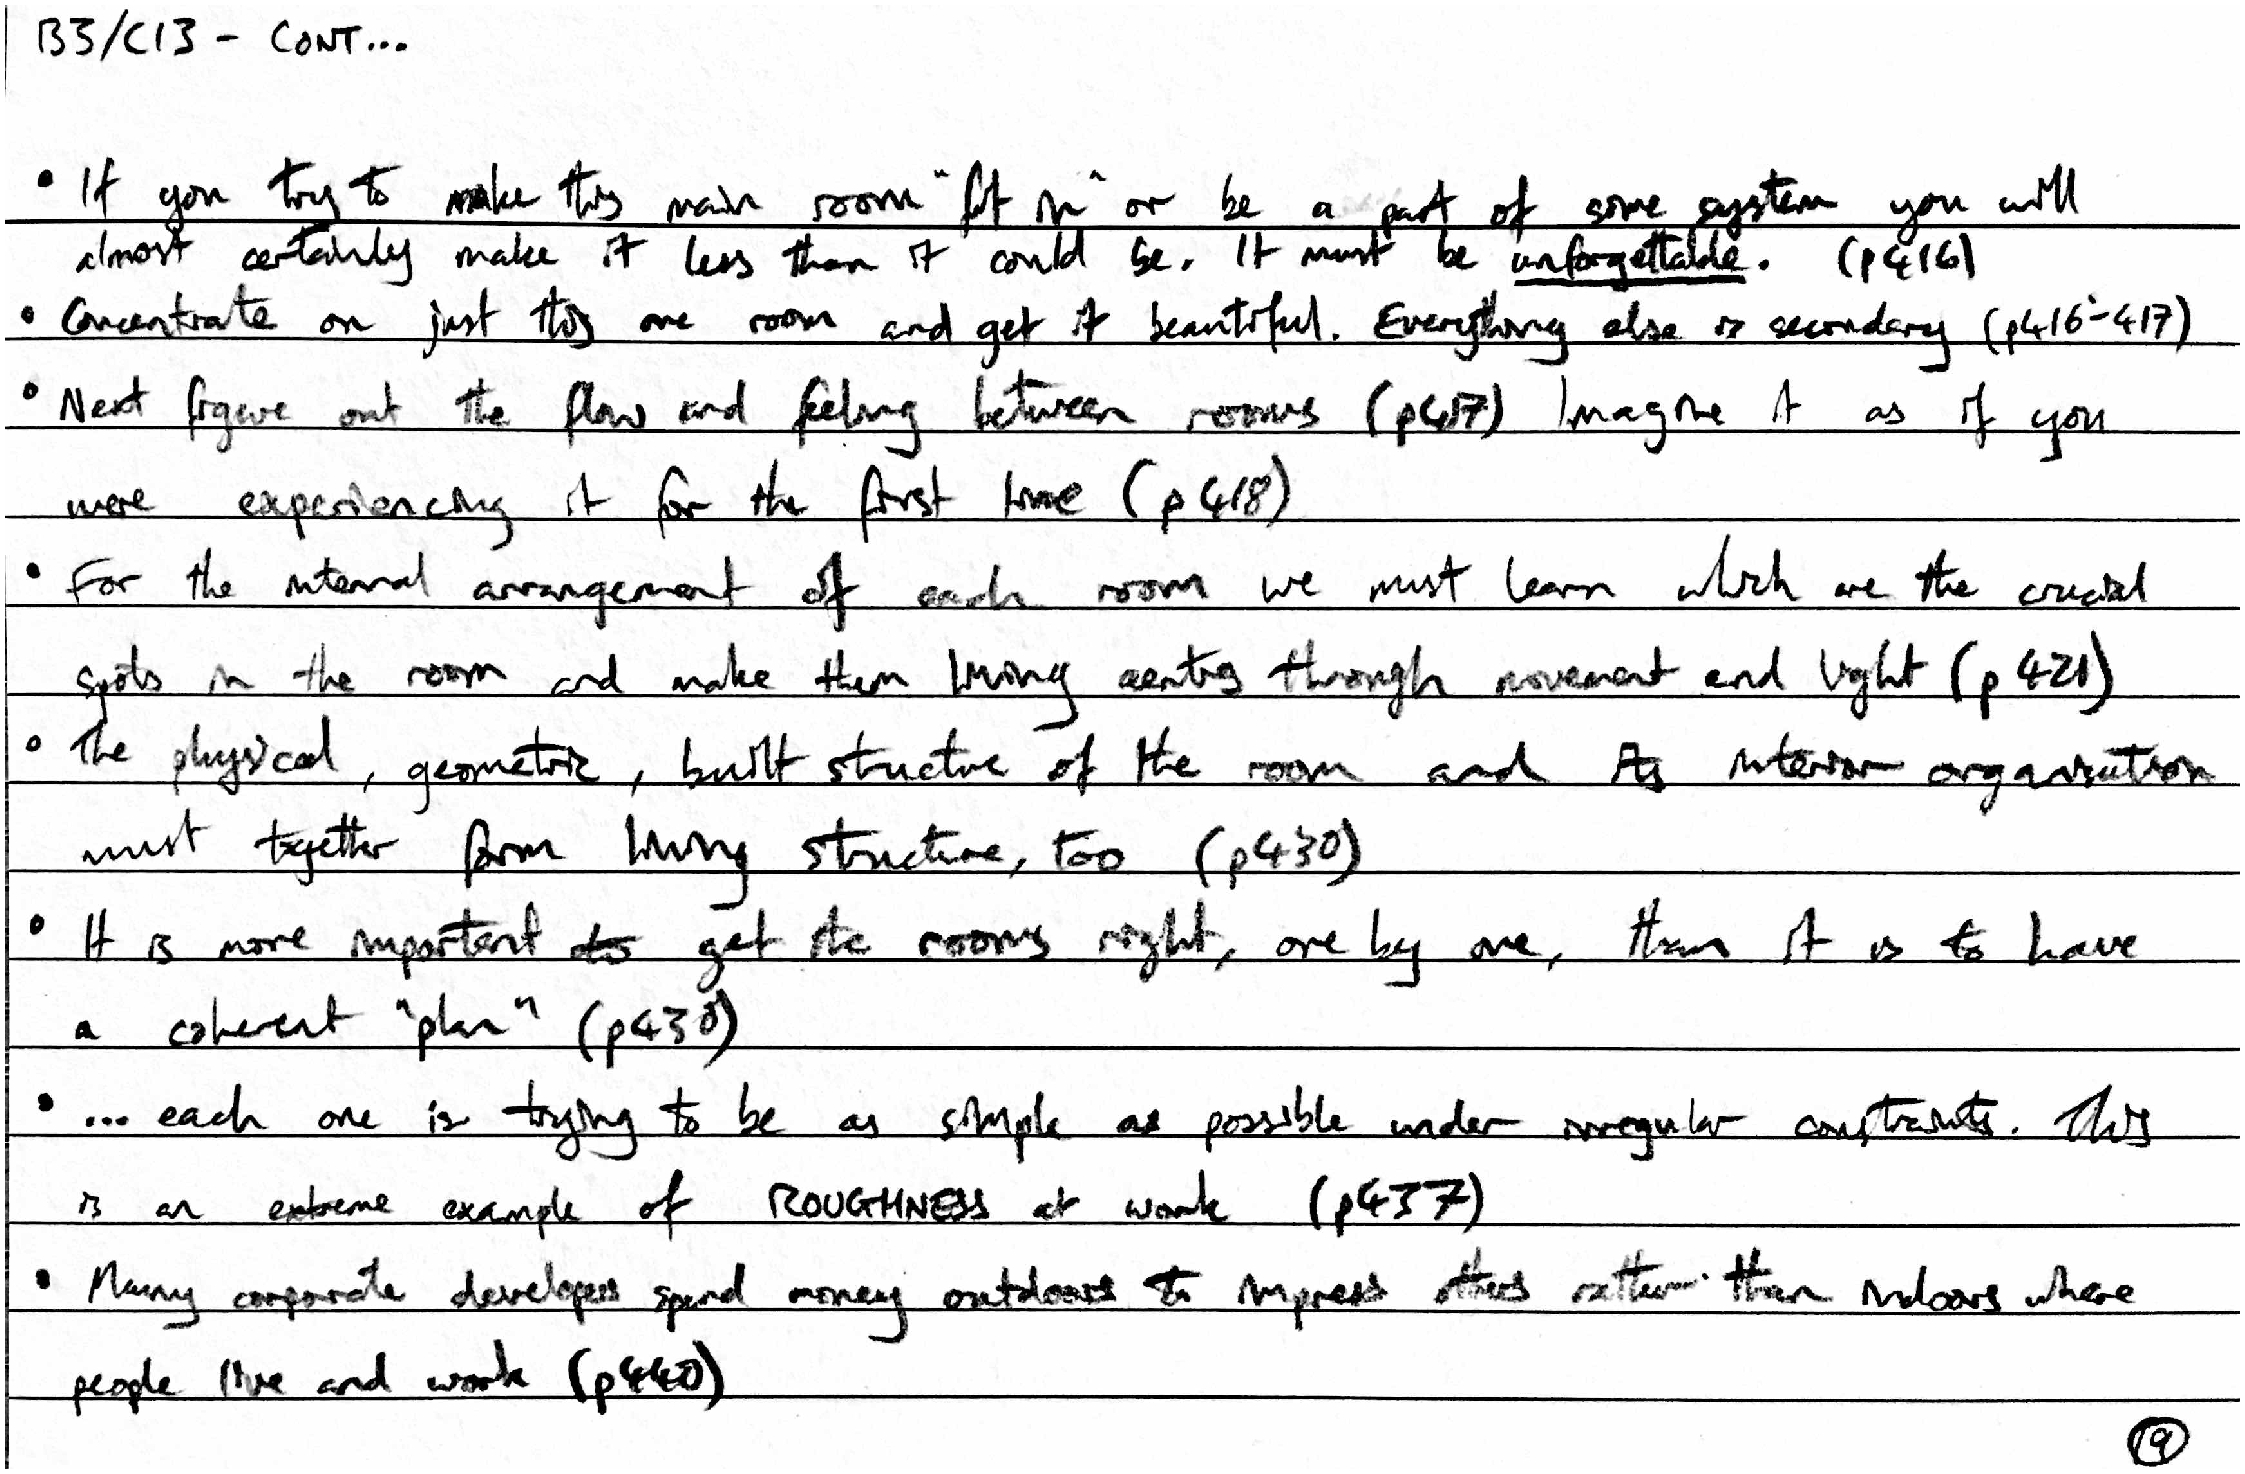 B3/C13 - CONT...
• If you try to make this main room "fit in" or be a part of some system you will
almost certainly make it less than it could be. It must be unforgettable. (p416)
• Concentrate on just this one room and get it beautiful. Everything else is secondary (p416-417)
• Next figure out the flow and feeling between rooms (p417) Imagine it as if you
were experiencing it for the first time (p418)
• For the internal arrangement of each room we must learn which are the crucial
spots in the room and make them living centres through movement and light (p421)
• The physical, geometric, built structure of the room and its interior organisation
must together form living structure, too (p430)
• It is more important to get the rooms right, one by one, than it is to have
a coherent "plan" (p430)
• ... each one is trying to be as simple as possible under irregular constraints. This
is an extreme example of ROUGHNESS at work (p437)
• Many corporate developers spend money outdoors to impress others rather than indoors where
people live and work (p440)
19